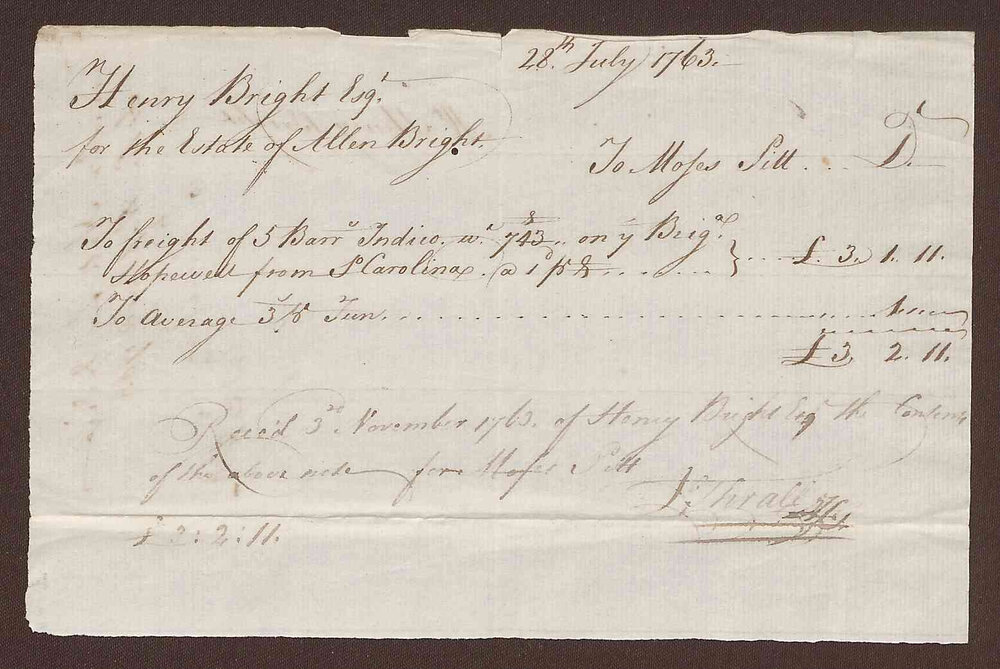 28.th July 1763.
Henry Bright Esq.r
for the Estate of Allen Bright.
To Moses Pitt . . . D.r
To freight of 5 Barr.s Indico. w.t 743 .. on y.e Brig.a
Hopewell from S.o Carolina . @ 1.d } . . . . £. 3. 1. 11.
To Average 3/ Tun . . . . . . . . . . . . . . . . 1 . . .
£ 3. 2. 11.
Rece'd 3.rd November 1763. of Henry Bright Esq.r the Contents
of the above note for Moses Pitt
Thrall
£ 3 : 2 : 11.